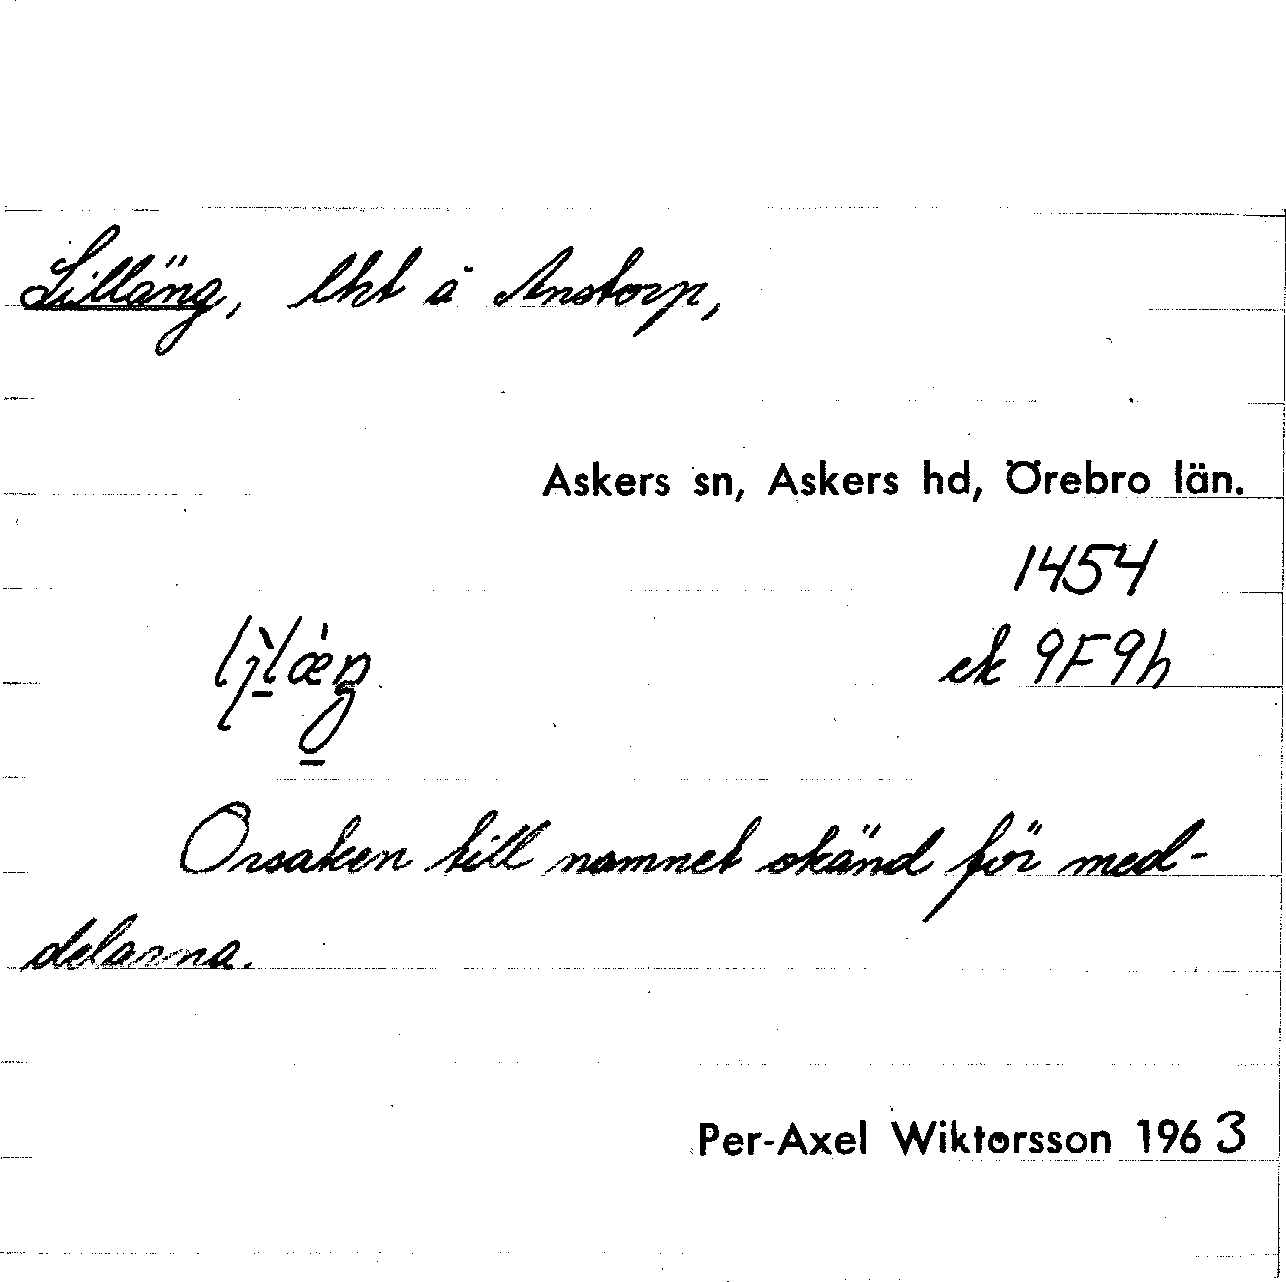 Lilläng, lht å Anstorp,
Askers sn, Askers hd, Örebro län.
1454
ek 9F9h
Orsaken till namnet okänd för med-
delarna.
Per-Axel Wiktorsson 1963